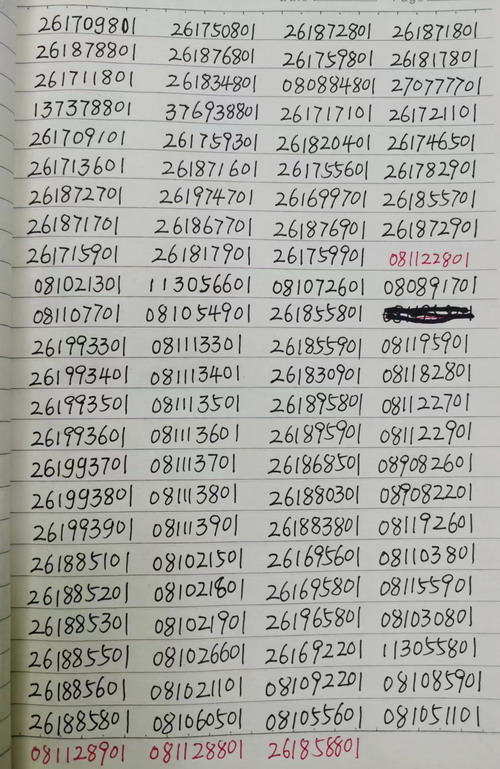 261709801 261750801 261872801 261871801
261878801 261876801 261759801 261817801
261711801 261834801 080884801 270777701
137378801 376938801 261717101 261721101
261709101 261759301 261820401 261746501
261713601 261871601 261755601 261782901
261872701 261974701 261699701 261855701
261871701 261867701 261876901 261872901
261715901 261817901 261759901 081122801
081021301 113056601 081072601 080891701
081107701 081054901 261855801
261993301 081113301 261855901 081195901
261993401 081113401 261830901 081182801
261993501 081113501 261895801 081122701
261993601 081113601 261895901 081122901
261993701 081113701 261868501 089082601
261993801 081113801 261880301 089082201
261993901 081113901 261883801 081192601
261885101 081021501 261695601 081103801
261885201 081021801 261695801 081155901
261885301 081021901 261965801 081030801
261885501 081026601 261692201 113055801
261885601 081021101 081092201 081085901
261885801 081060501 081055601 081051101
081128901 081128801 261858801